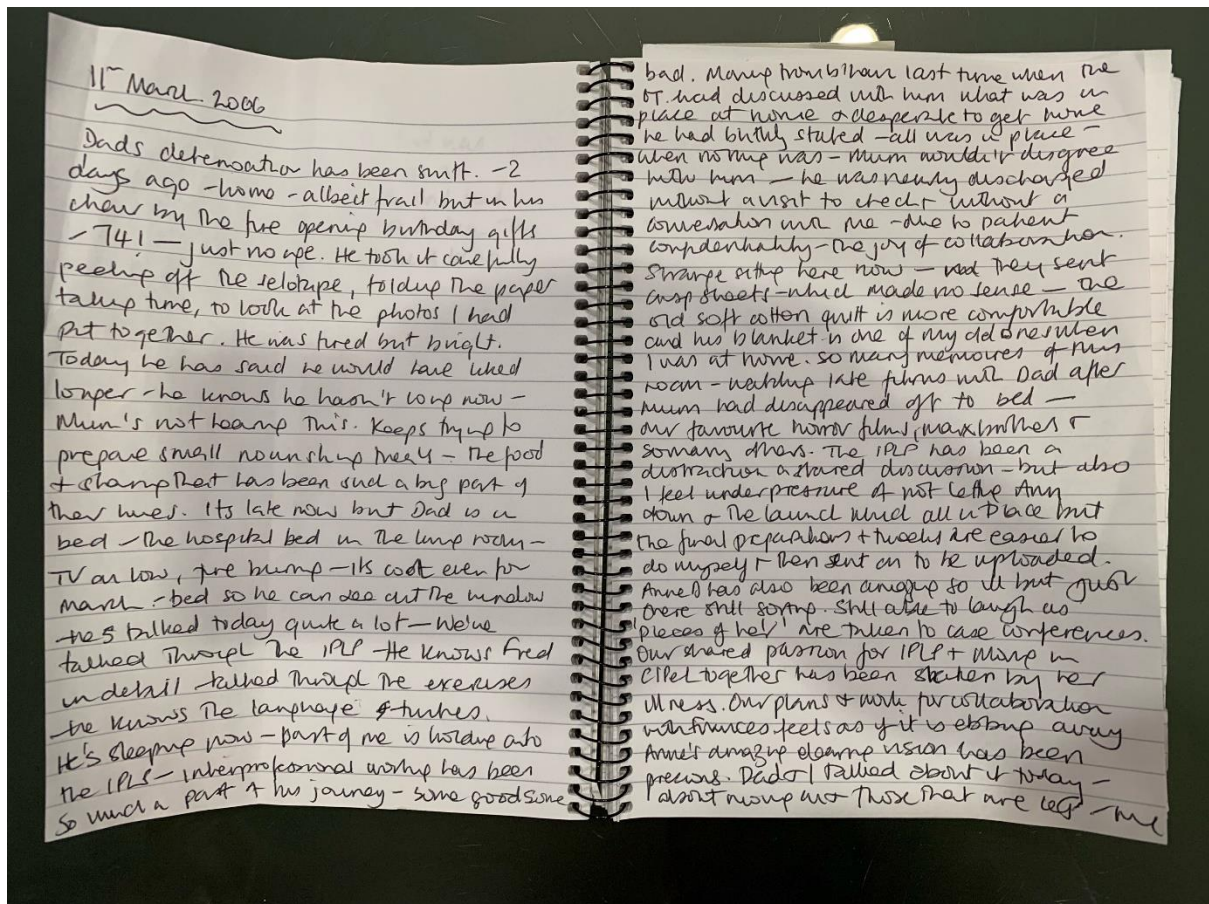 11th March. 2006
Dads deterioration has been swift. - 2
days ago - home - albeit frail but in his
chair by the fire opening birthday gifts
- 74! - just no age. He took it carefully
peeling off the selotape, folding the paper
taking time, to look at the photos I had
put together. He was tired but bright.
Today he has said he would have liked
longer - he knows he hasn't long now -
Mum's not hearing this. Keeps trying to
prepare small nourishing meals - the food
+ sharing that has been such a big part of
their lives. Its late now but Dad is in
bed - the hospital bed in the living room -
TV on low, fire burning - its cold even for
March - bed so he can see out the window
- he's talked today quite a lot - We've
talked through the IPLP - He knows Fred
in detail - talked through the exercises
- he knows the language & turns.
He's sleeping now - part of me is holding onto
the IPLP - interprofessional working has been
so much a part of his journey - some good some
bad. Moving from than last time when the
OT. had discussed with him what was in
place at home & desperate to get home
he had blithly stated - all was in place -
when nothing was - Mum wouldn't disgree
with him - he was nearly discharged
without a visit to check + without a
conversation with me - due to patient
confidentiality - the joy of collaboration.
Strange sitting here now - they sent
crisp sheets - which made no sense - the
old soft cotton quilt is more comfortable
and his blanket is one of my old ones when
I was at home. So many memories of this
room - watching late films with Dad after
Mum had disappeared off to bed -
our favourite horror films, marx brothers +
so many others. The IPLP has been a
distraction a shared discussion - but also
I feel under pressure of not letting Ann
down & the launch which all in place but
the final preparations + tweeks are easier to
do myself + then sent on to be uploaded.
Anne has also been amazing so ill but just
there still sorting. Still able to laugh as
'pieces of her' are taken to case conferences.
Our shared passion for IPLP + moving in
CIPeL together has been shaken by her
illness. Our plans & work for collaboration
with Frances feels as if it is ebbing away
Anne's amazing elearning vision has been
precious. Dad & I talked about it today -
about moving and those that are left - me